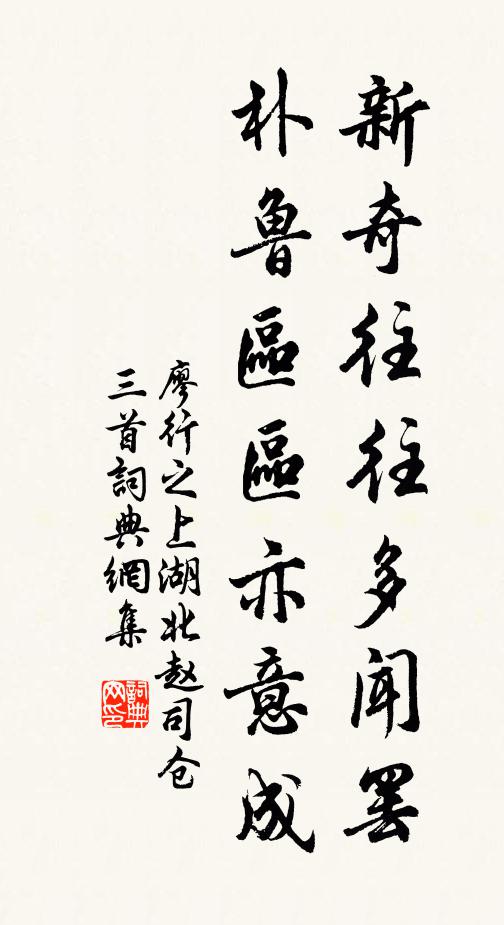 新奇往往多闻罢
朴鲁區區亦意成
廖行之上湖北赵司仓
三首詞典網集
詞典网印